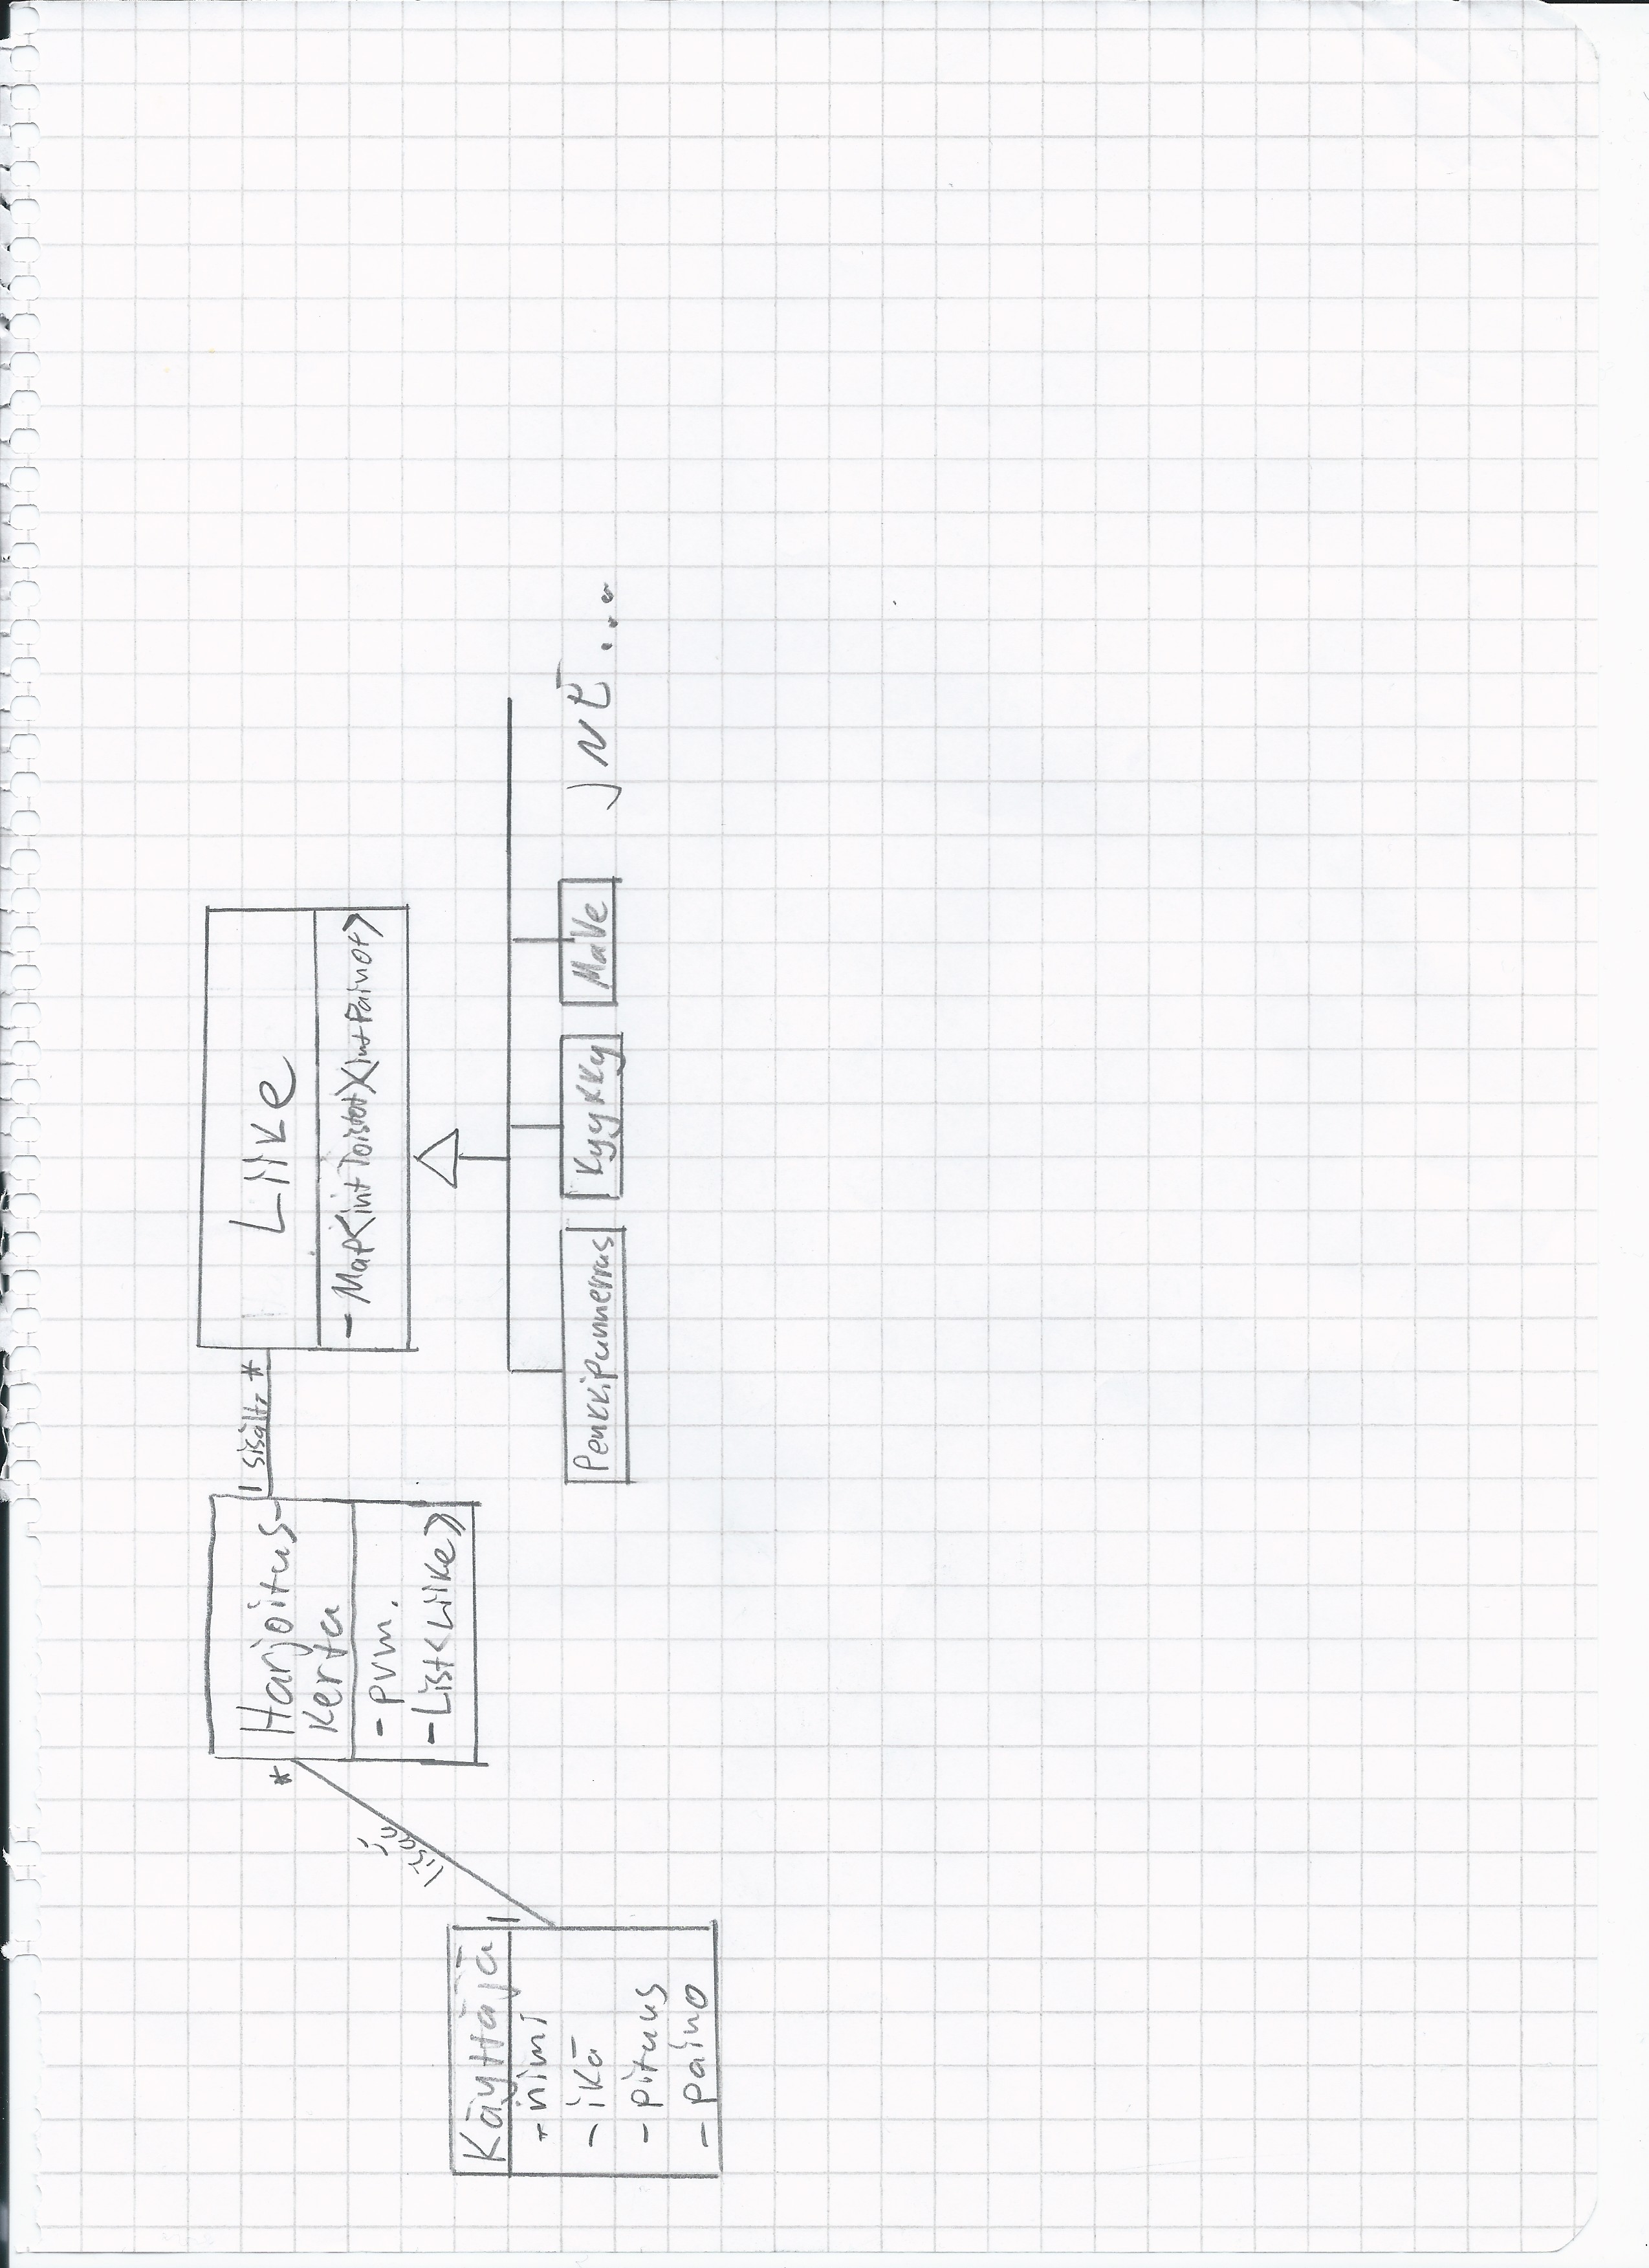 Käyttäjä
- nimi
- ikä
- pituus
- paino
1
lisää
*
Harjoitus-
kerta
- pvm.
- List<Liike>
1 sisältää *
Liike
- Map<int Toistot><int Painot>
Penkkipunnerrus
Kyykky
MaVe
JNE...